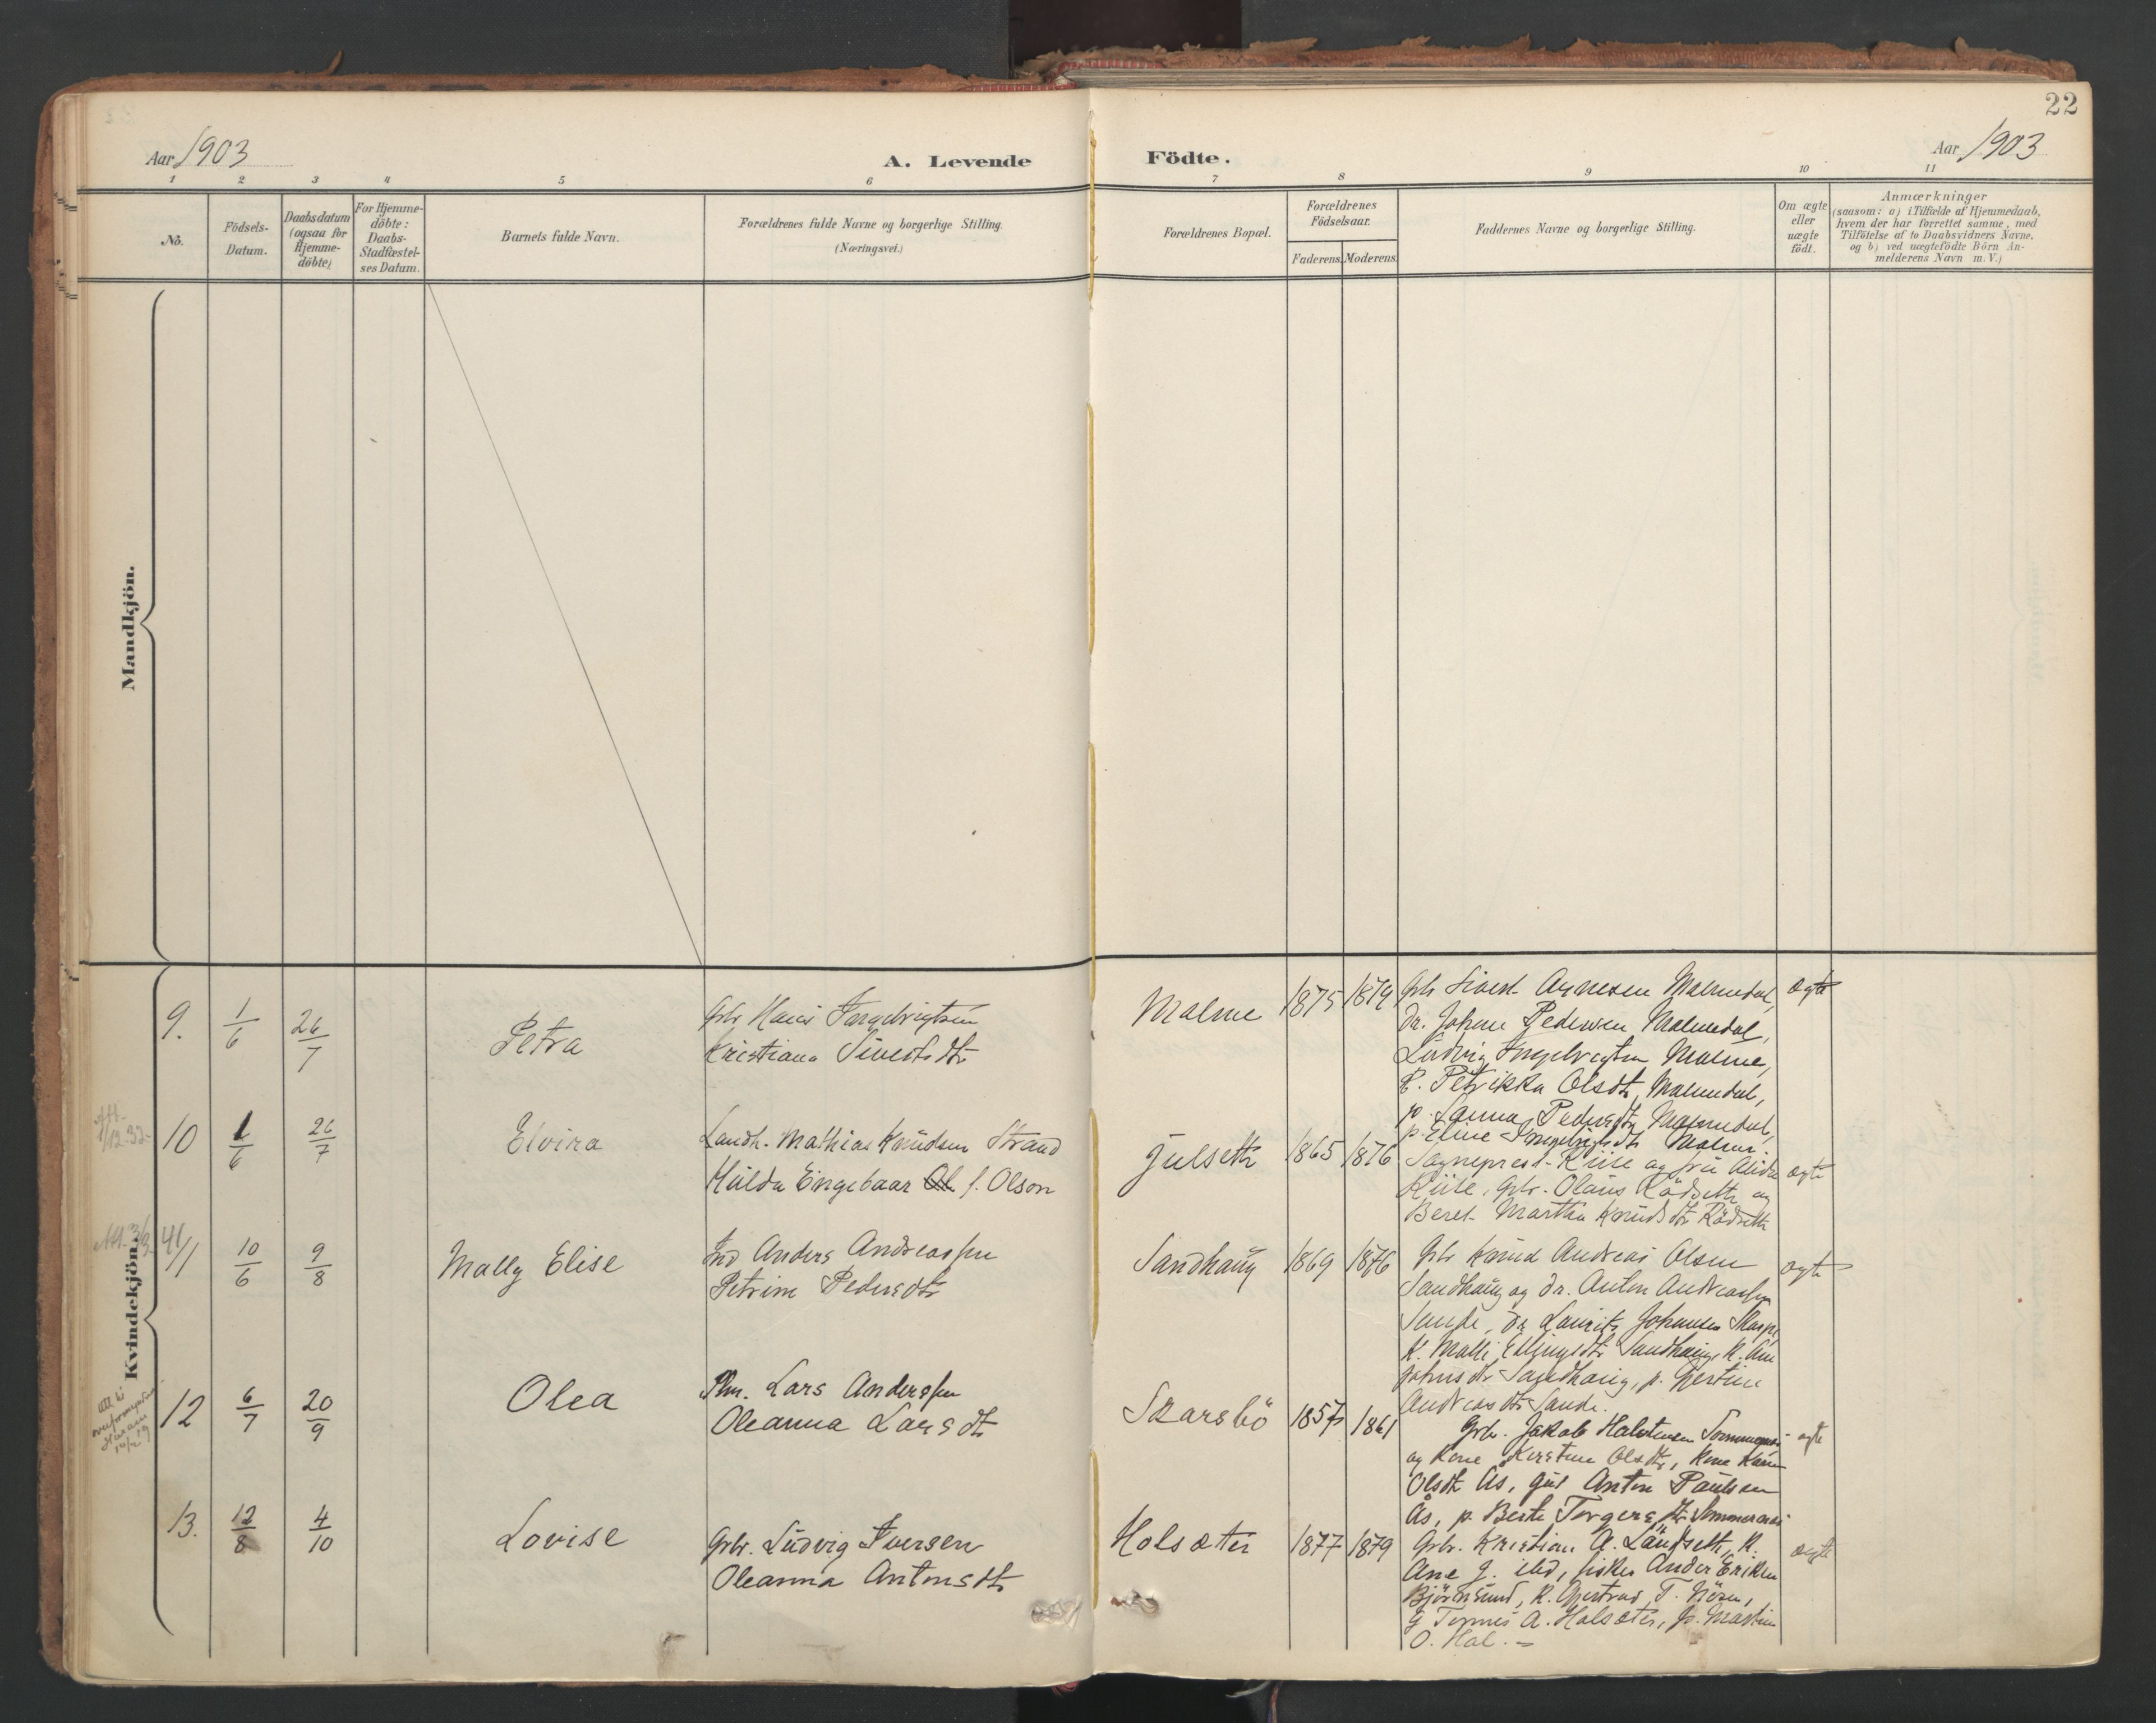 22
Aar 1903
A. Levende Födte.
Aar 1903
1 2 3 4 5 6 7 8 9 10 11
No.
Födsels-
Datum.
Daabsdatum
(ogsaa for
Hjemme-
döbte)
For Hjemme-
döbte:
Daabs-
Stadfæstel-
ses Datum.
Barnets fulde Navn.
Forældrenes fulde Navne og borgerlige Stilling.
(Næringsvei.)
Forældrenes Bopæl.
Forældrenes
Födselsaar.
Faderens. Moderens.
Faddernes Navne og borgerlige Stilling.
Om ægte
eller
uægte
födt.
Anmærkninger
(saasom: a) i Tilfælde af Hjemmedaab,
hvem der har forrettet samme, med
Tilföielse af to Daabsvidners Navne.
og b) ved uægtefödte Börn An-
melderens Navn m. V.)
Mandkjön.
Kvindekjön.
9. 1/6 26/7 Petra
Gbr Hans Ingebrigtsen
Kristiana Sivertsdtr
Malme 1875 1879
Gbr Sivert Aagnesen Malmedal,
Dr. Johan Pedersen Malmedal,
Ludvig Ingebrigtsen Malme,
K. Petrikka Olsdtr Malmedal,
p. Hanna Pedersdtr Malmedal,
p. Eline Ingebrigtsdtr Malme.
ægte
10 1/6 26/7 Elvira
Landh. Mathias Knudsen Strand
Hulda Eingebaar Ol f. Olson
Julseth 1865 1876
Sognepræst Riise og fru Alida
Riise, Gbr. Olaus Rödseth og
Beret Martha Knudsdtr Rödseth
ægte
11 10/6 9/8 Mally Elise
Ind Anders Andreassen
Petrine Pedersdtr
Sandhaug 1869 1876
Gbr Knud Andreas Olsen
Sandhaug og dr. Anton Andreassen
Sande, Dr Laurits Johansen
K. Malli Ellingsdtr Sandhaug, K. Ane
Johnsdtr Sandhaug, p. Gjertine
Andreasdtr Sande.
ægte
12 6/7 20/9 Olea
Plm. Lars Anderssen
Oleanna Larsdtr
Skarsbö 1857 1861
Grbr. Jakob Halstensen
og Kone Kirstine Olsdtr, Kone Karen
Olsdtr Ås, Gut Anton Paulsen
Ås, p. Berte Torgersdtr
ægte
13. 12/8 4/10 Lovise
Grbr. Ludvig Iversen
Oleanna Antonsdtr
Holsæter 1877 1879
Grbr. Kristian A. Landseth, K.
Ane J. ibd, fisker Ander Eriksen
Björnsund, K. Gjertrud T. Nösen,
G Tormus A. Holsæter, p. Martine
O. Hol. –
ægte